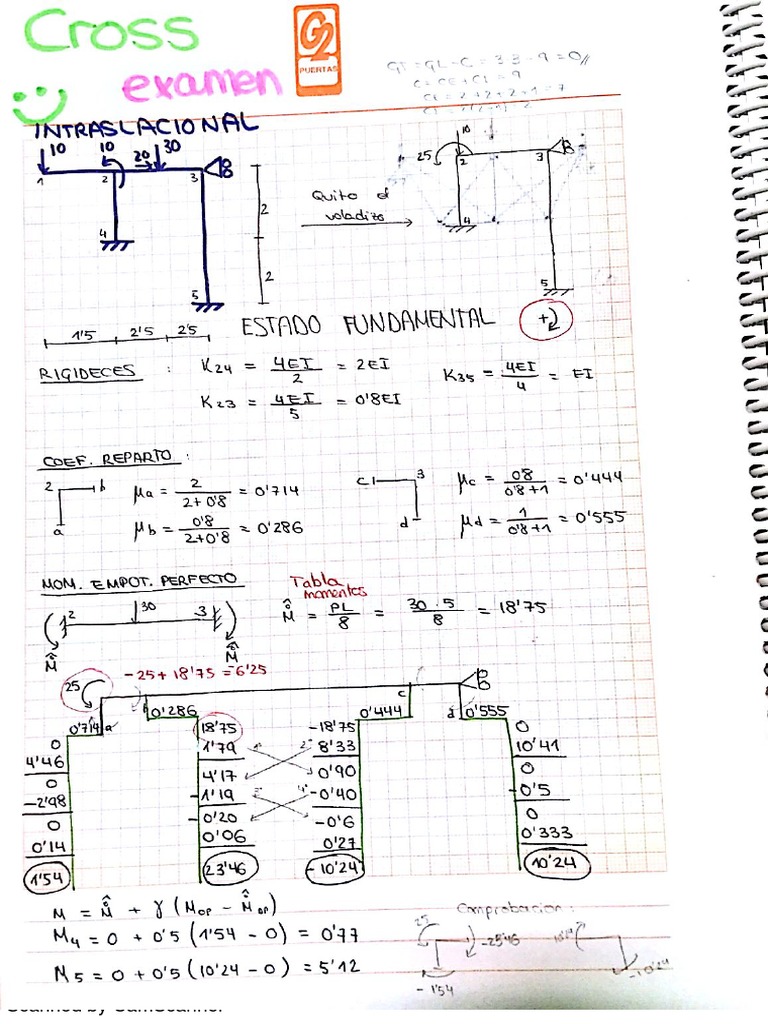 Cross
examen
G2
PUERTAS
GT = GL - C = 33 - 9 = 0//
INTRASLACIONAL
10 10 20 30
1 2 3
4
5
2
2
Quito el
voladizo
10
25
2 3
4
5
1'5 2'5 2'5
ESTADO FUNDAMENTAL +
RIGIDECES : K24 = 4EI/2 = 2EI K35 = 4EI/4 = EI
K23 = 4EI/5 = 0'8EI
COEF. REPARTO :
2 b a μa = 2/(2+0'8) = 0'714 c 3 d μc = 08/(0'8+1) = 0'444
μb = 0'8/(2+0'8) = 0'286 μd = 1/(0'8+1) = 0'555
MOM. EMPOT. PERFECTO
Tabla
momentos
2 30 3 M = PL/8 = 30·5/8 = 18'75
M M
-25 + 18'75 = 6'25
25
a b c d
0'714 0'286 0'444 0'555
0 18'75 -18'75 0
4'46 1'79 8'33 10'41
0 4'17 0'90 0
-2'98 -1'19 -0'40 -0'5
0 -0'20 -0'6 0
0'14 0'06 0'27 0'333
1'54 23'46 -10'24 10'24
M = M + γ (Mop - Mop)
M4 = 0 + 0'5 (1'54 - 0) = 0'77
M5 = 0 + 0'5 (10'24 - 0) = 5'12
Comprobación :
25
-25'46
-1'54
-10'24
Scanned by CamScanner